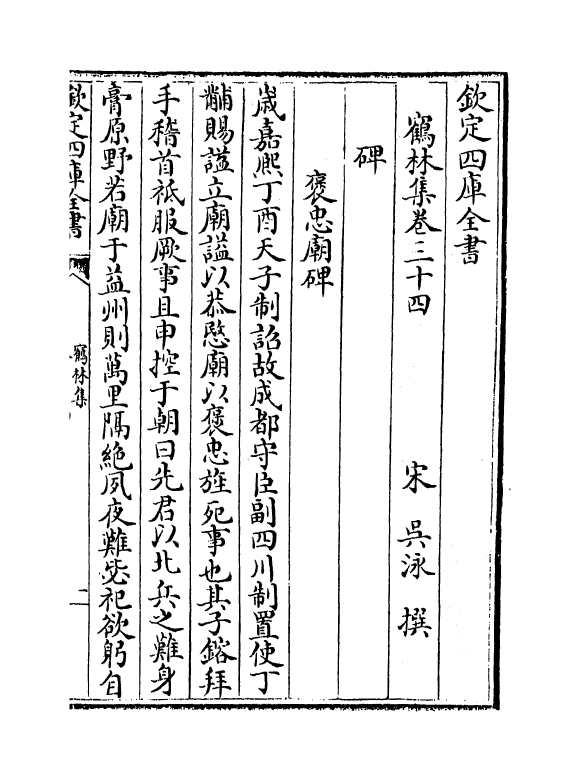 欽定四庫全書
鶴林集卷三十四
宋 吳泳 撰
碑
褒忠廟碑
歳嘉熈丁酉天子制詔故成都守臣副四川制置使丁
黼賜諡立廟諡以恭愍廟以褒忠旌死事也其子鎔拜
手稽首祗服厥事且申控于朝曰先君以北兵之難身
膏原野若廟于益州則萬里隔絶夙夜難毖祀欲躬自
欽定四庫全書
鶴林集